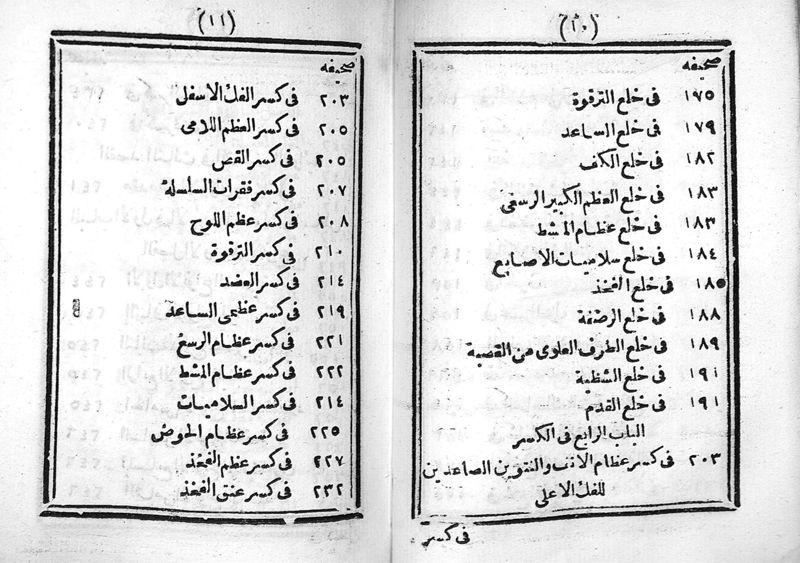 (١٠)
صحيفه
١٧٥ فى خلع الترقوة
١٧٩ فى خلع الساعد
١٨٢ فى خلع الكف
١٨٣ فى خلع العظم الكبير الرسغى
١٨٣ فى خلع عظام المشط
١٨٤ فى خلع سلاميات الاصابع
١٨٥ فى خلع الفخذ
١٨٨ فى خلع الرضفة
١٨٩ فى خلع الطرف العلوى من القصبة
١٩١ فى خلع الشظية
١٩١ فى خلع القدم
الباب الرابع فى الكسر
٢٠٣ فى كسر عظام الانف والنتوين الصاعدين
للفك الاعلى
فى كسر
(١١)
صحيفه
٢٠٣ فى كسر الفك الاسفل
٢٠٥ فى كسر العظم اللامى
٢٠٥ فى كسر القص
٢٠٧ فى كسر فقرات السلسله
٢٠٨ فى كسر عظم اللوح
٢١٠ فى كسر الترقوة
٢١٤ فى كسر العضد
٢١٩ فى كسر عظيمى الساعد
٢٢١ فى كسر عظام الرسغ
٢٢٢ فى كسر عظام المشط
٢١٤ فى كسر السلاميات
٢٢٥ فى كسر عظام الحوض
٢٢٧ فى كسر عظم الفخذ
٢٣٢ فى كسر عنق الفخذ